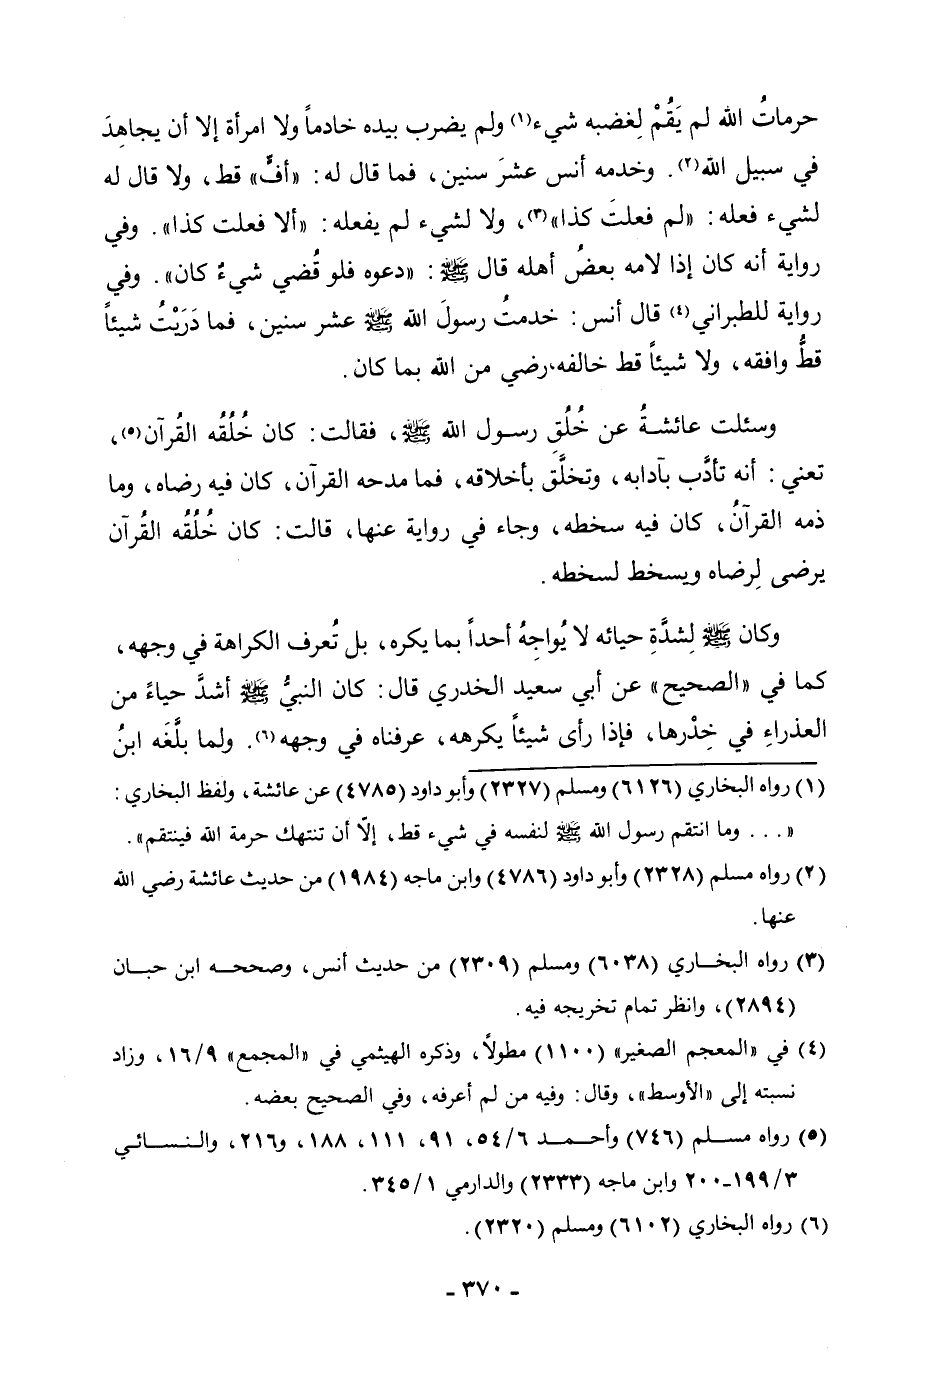 حرماتُ الله لم يَقُمْ لِغضبه شيء(١) ولم يضرب بيده خادماً ولا امرأة إلا أن يجاهِدَ
في سبيل الله(٢). وخدمه أنس عشرَ سنين، فما قال له: «أفٍّ» قط، ولا قال له
لشيء فعله: «لم فعلتَ كذا»(٣)، ولا لشيء لم يفعله: «ألا فعلت كذا». وفي
رواية أنه كان إذا لامه بعضُ أهله قال ﷺ: «دعوه فلو قُضي شيءٌ كان». وفي
رواية للطبراني(٤) قال أنس: خدمتُ رسولَ الله ﷺ عشر سنين، فما دَرَيْتُ شيئاً
قطُّ وافقه، ولا شيئاً قط خالفه، رضي من الله بما كان.
وسئلت عائشةُ عن خُلُقِ رسول الله ﷺ، فقالت: كان خُلُقُه القُرآن(٥)،
تعني: أنه تأدَّب بآدابه، وتخلَّق بأخلاقه، فما مدحه القرآن، كان فيه رضاه، وما
ذمه القرآنُ، كان فيه سخطه، وجاء في رواية عنها، قالت: كان خُلُقُه القُرآن
يرضى لِرضاه ويسخط لسخطه.
وكان ﷺ لِشدَّةِ حيائه لا يُواجِهُ أحداً بما يكره، بل تُعرف الكراهة في وجهه،
كما في «الصحيح» عن أبي سعيد الخدري قال: كان النبيُّ ﷺ أشدَّ حياءً من
العذراءِ في خِدْرها، فإذا رأى شيئاً يكرهه، عرفناه في وجهه(٦). ولما بلَّغَه ابنُ
(١) رواه البخاري (٦١٢٦) ومسلم (٢٣٢٧) وأبو داود (٤٧٨٥) عن عائشة، ولفظ البخاري:
«... وما انتقم رسول الله ﷺ لنفسه في شيء قط، إلّا أن تنتهك حرمة الله فينتقم».
(٢) رواه مسلم (٢٣٢٨) وأبو داود (٤٧٨٦) وابن ماجه (١٩٨٤) من حديث عائشة رضي الله
عنها.
(٣) رواه البخاري (٦٠٣٨) ومسلم (٢٣٠٩) من حديث أنس، وصححه ابن حبان
(٢٨٩٤)، وانظر تمام تخريجه فيه.
(٤) في «المعجم الصغير» (١١٠٠) مطولاً، وذكره الهيثمي في «المجمع» ١٦/٩، وزاد
نسبته إلى «الأوسط»، وقال: وفيه من لم أعرفه، وفي الصحيح بعضه.
(٥) رواه مسلم (٧٤٦) وأحمد ٥٤/٦، ٩١، ١١١، ١٨٨، و٢١٦، والنسائي
١٩٩/٣-٢٠٠ وابن ماجه (٢٣٣٣) والدارمي ٣٤٥/١.
(٦) رواه البخاري (٦١٠٢) ومسلم (٢٣٢٠).
- ٣٧٠ -